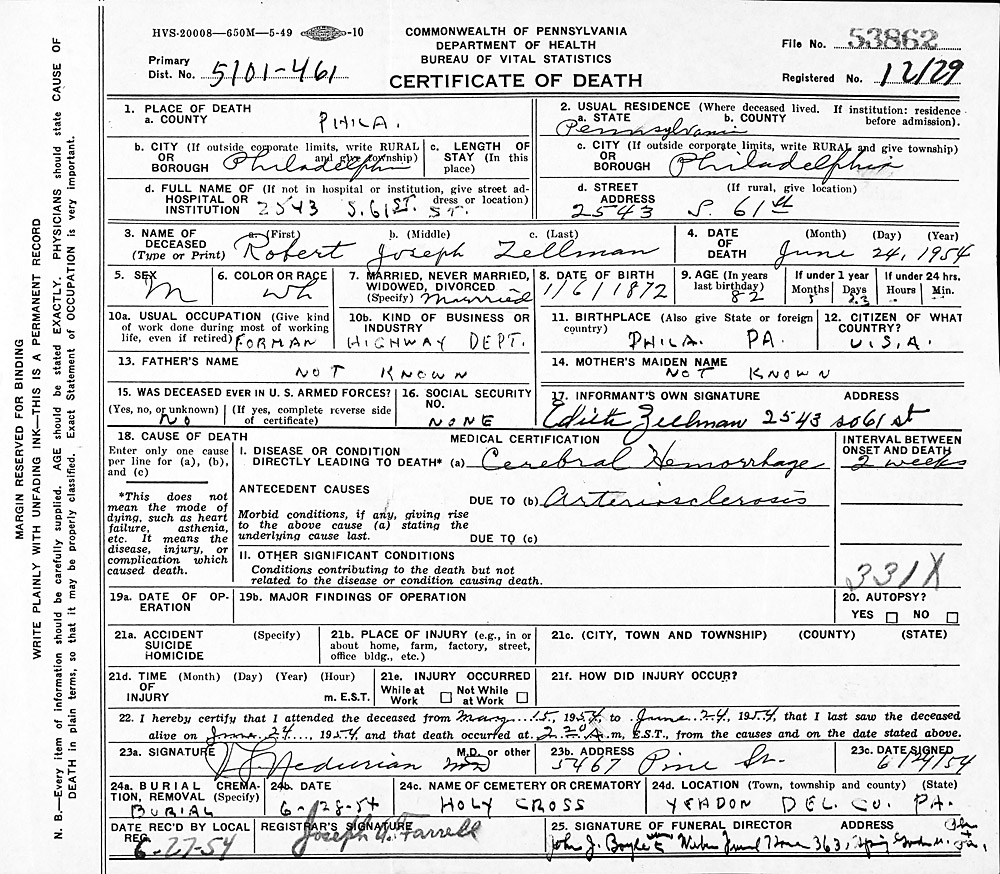 HVS-20008—650M—5-49 -10
COMMONWEALTH OF PENNSYLVANIA
DEPARTMENT OF HEALTH
BUREAU OF VITAL STATISTICS
CERTIFICATE OF DEATH
File No. 53862
Primary Dist. No. 5101-461
Registered No. 12129
MARGIN RESERVED FOR BINDING
WRITE PLAINLY WITH UNFADING INK—THIS IS A PERMANENT RECORD
N. B.—Every item of information should be carefully supplied. AGE should be stated EXACTLY. PHYSICIANS should state CAUSE OF
DEATH in plain terms, so that it may be properly classified. Exact Statement of OCCUPATION is very important.
1. PLACE OF DEATH
a. COUNTY PHILA.
2. USUAL RESIDENCE (Where deceased lived. If institution: residence before admission).
a. STATE b. COUNTY
Pennsylvania
b. CITY (If outside corporate limits, write RURAL and give township) OR BOROUGH Philadelphia
c. LENGTH OF STAY (In this place)
c. CITY (If outside corporate limits, write RURAL and give township) OR BOROUGH Philadelphia
d. FULL NAME OF HOSPITAL OR INSTITUTION (If not in hospital or institution, give street address or location) 2543 S. 61ST. ST.
d. STREET ADDRESS (If rural, give location)
2543 S. 61th
3. NAME OF DECEASED (Type or Print) a. (First) b. (Middle) c. (Last)
Robert Joseph Zellman
4. DATE OF DEATH (Month) (Day) (Year)
June 24, 1954
5. SEX M
6. COLOR OR RACE Wh
7. MARRIED, NEVER MARRIED, WIDOWED, DIVORCED (Specify) Married
8. DATE OF BIRTH 1/6/1872
9. AGE (In years last birthday) 82
If under 1 year Months 5 Days 23
If under 24 hrs. Hours Min.
10a. USUAL OCCUPATION (Give kind of work done during most of working life, even if retired) FORMAN
10b. KIND OF BUSINESS OR INDUSTRY HIGHWAY DEPT.
11. BIRTHPLACE (Also give State or foreign country) PHILA. PA.
12. CITIZEN OF WHAT COUNTRY? U.S.A.
13. FATHER'S NAME NOT KNOWN
14. MOTHER'S MAIDEN NAME NOT KNOWN
15. WAS DECEASED EVER IN U. S. ARMED FORCES?
(Yes, no, or unknown) No (If yes, complete reverse side of certificate)
16. SOCIAL SECURITY NO. NONE
17. INFORMANT'S OWN SIGNATURE ADDRESS
Edith Zellman 2543 so 61 st
18. CAUSE OF DEATH
Enter only one cause per line for (a), (b), and (c)
*This does not mean the mode of dying, such as heart failure, asthenia, etc. It means the disease, injury, or complication which caused death.
MEDICAL CERTIFICATION
INTERVAL BETWEEN ONSET AND DEATH
I. DISEASE OR CONDITION DIRECTLY LEADING TO DEATH* (a) Cerebral Hemorrhage 2 weeks
ANTECEDENT CAUSES
Morbid conditions, if any, giving rise to the above cause (a) stating the underlying cause last.
DUE TO (b) Arteriosclerosis
DUE TO (c)
II. OTHER SIGNIFICANT CONDITIONS
Conditions contributing to the death but not related to the disease or condition causing death.
331X
19a. DATE OF OPERATION
19b. MAJOR FINDINGS OF OPERATION
20. AUTOPSY?
YES NO
21a. ACCIDENT SUICIDE HOMICIDE (Specify)
21b. PLACE OF INJURY (e.g., in or about home, farm, factory, street, office bldg., etc.)
21c. (CITY, TOWN AND TOWNSHIP) (COUNTY) (STATE)
21d. TIME OF INJURY (Month) (Day) (Year) (Hour) m. E.S.T.
21e. INJURY OCCURRED
While at Work Not While at Work
21f. HOW DID INJURY OCCUR?
22. I hereby certify that I attended the deceased from 15, 1954, to June 24, 1954, that I last saw the deceased
alive on June 24, 1954, and that death occurred at m, E.S.T., from the causes and on the date stated above.
23a. SIGNATURE M.D. or other
Nedurian MD
23b. ADDRESS
5467 Pine St.
23c. DATE SIGNED
6/24/54
24a. BURIAL CREMATION, REMOVAL (Specify)
BURIAL
24b. DATE
6-28-54
24c. NAME OF CEMETERY OR CREMATORY
HOLY CROSS
24d. LOCATION (Town, township and county) (State)
YEADON DEL. CO. PA.
DATE REC'D BY LOCAL REG. 6-27-54
REGISTRAR'S SIGNATURE
Joseph A. Farrell
25. SIGNATURE OF FUNERAL DIRECTOR ADDRESS
John J. Boyle